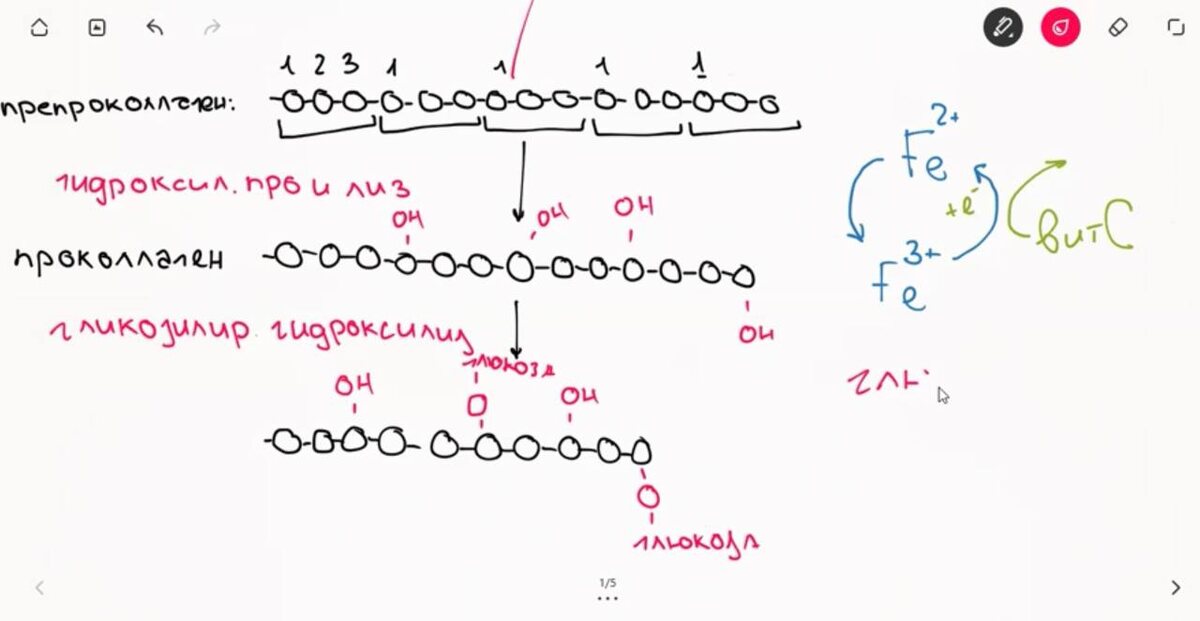 1 2 3 1 1 1 1
препроколлаген:
гидроксил. про и лиз
OH OH OH
проколлаген
OH
гликозилир. гидроксилиз
глюкоза
OH
O
OH
O
глюкоза
Fe 2+
+e-
витС
Fe 3+
1/5